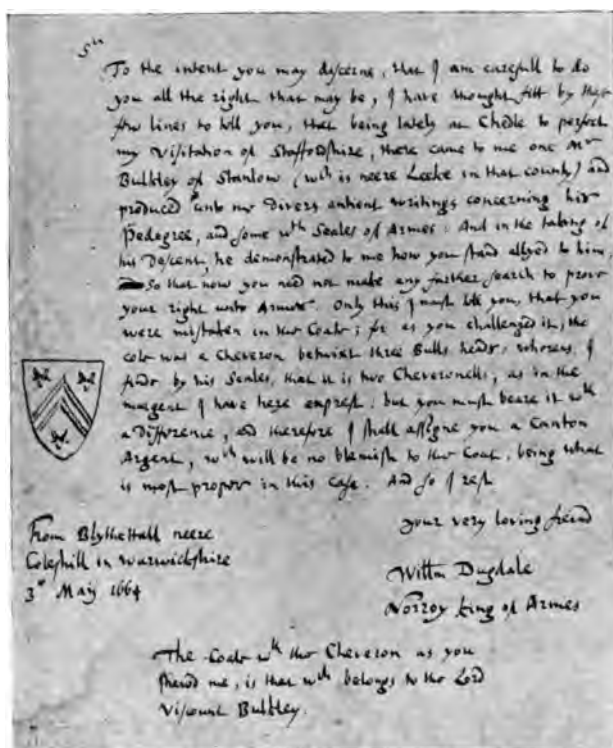 Sir
To the intent you may discerne, that I am carefull to do
you all the right that may be, I have thought fitt by these
few lines to tell you, that being lately at Chedle to perfect
my Visitation of Staffordshire, there came to me one Mr
Bulkley of Stanlow (wch is neere Leeke in that county) and
produced unto me Divers antient writings concerning his
Pedegree, and some wth Seales of Armes: And in the taking of
his Descent, he demonstrated to me how you stand allyed to him,
So that now you need not make any further search to prove
your right unto Armes. Only this I must tell you, that you
were mistaken in the Coate; for as you challenged it, the
cote was a Cheveron betwixt three Bulls heads; whereas, I
finde by his Seales, that it is two Cheveronells, as in the
margent I have here exprest: but you must beare it wth
a Difference, and therefore I shall assigne you a Canton
Argent, wch will be no blemish to the Coat, being what
is most proper in this case. And so I rest
your very loving freind
From Blythe Hall neere
Coleshill in Warwickshire
3° May 1664
Willm Dugdale
Norroy King of Armes
The Coate wth the Cheveron as you
shewd me, is that wch belongs to the Lord
Viscount Bulkley.